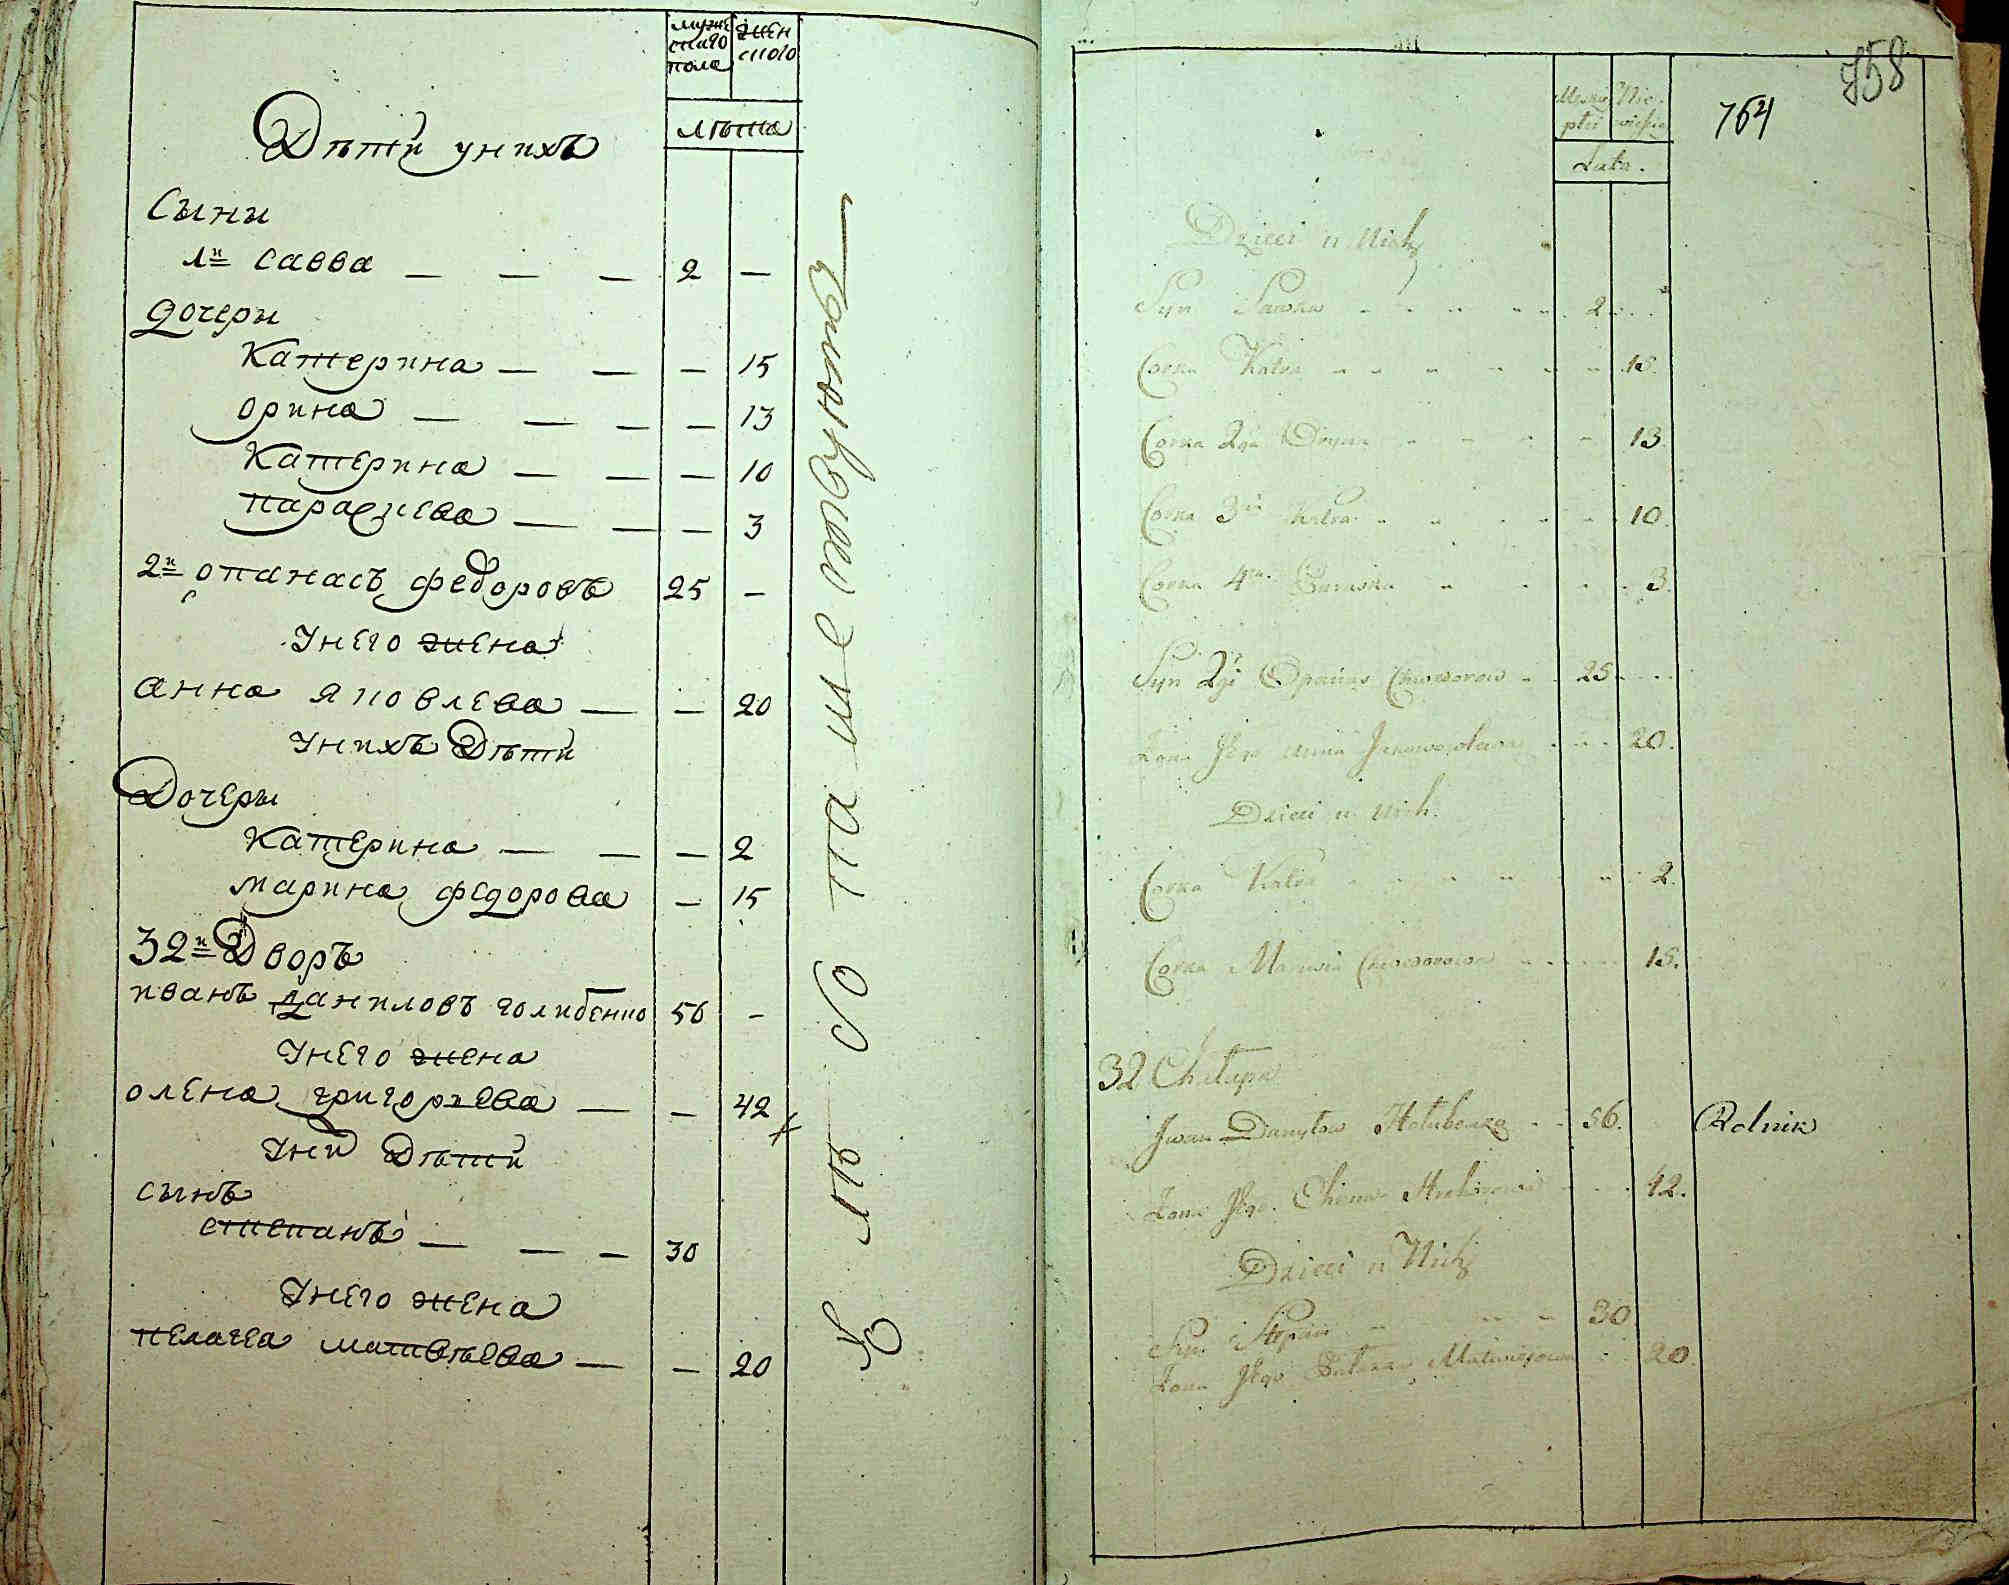 мужескаго пола
женскаго
лѣта
Дѣтй унихъ
Сыни
1й савва — — — 2 —
дочери
Катерина — — — 15
орина — — — — 13
Катерина — — — 10
параскева — — — 3
2й опанасъ федоровъ 25 —
Унего жена
анна яковлева — — 20
Унихъ Дѣтй
Дочеры
Катерина — — — 2
марина федорова — 15
32й Дворъ
иванъ даниловъ голубенко 56 —
Унего жена
олена григорьева — — 42
Уни Дѣтй
сынъ
степанъ — — — 30
Унего жена
пелагея матвѣева — — 20
758
764
Lata.
Dzieci u Nich
Syn Sawka 2
Corka Katra 15.
Corka 2ga Oryna 13.
Corka 3cia Katra 10.
Corka 4ta Paraska 3.
Syn 2gi Opanas Chwedorow 25
Żona Jego Anna Jakowowa 20.
Dzieci u Nich.
Corka Katra 2.
Corka Marusia Chwedorowa 15.
32 Chałupa
Jwan Danyłow Hołubenko 56. Rolnik
Żona Jego 42.
Dzieci u Nich
Syn Stepan 30
Żona Jego Matwiejowa 20.